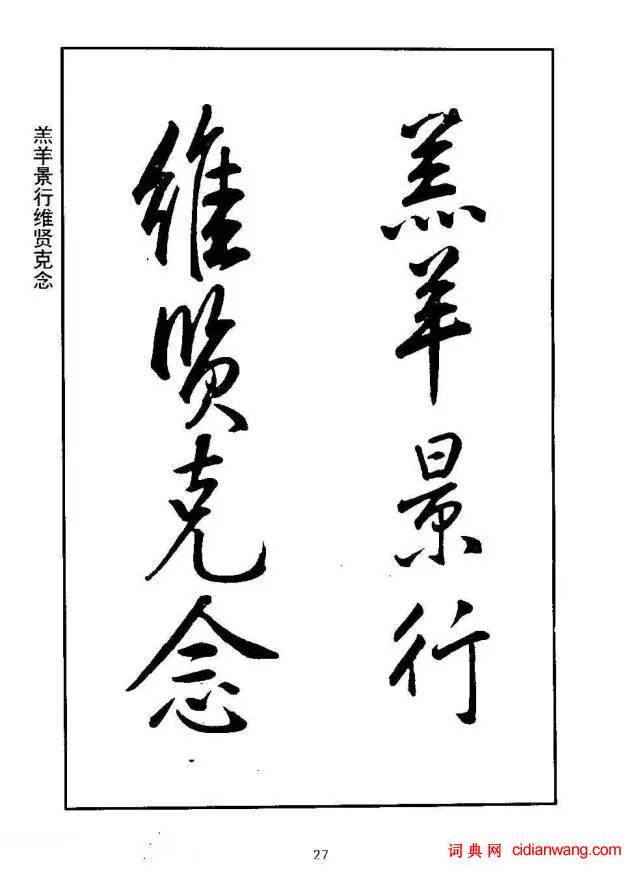 羔羊景行
维贤克念
羔羊景行维贤克念
27
词典网 cidianwang.com